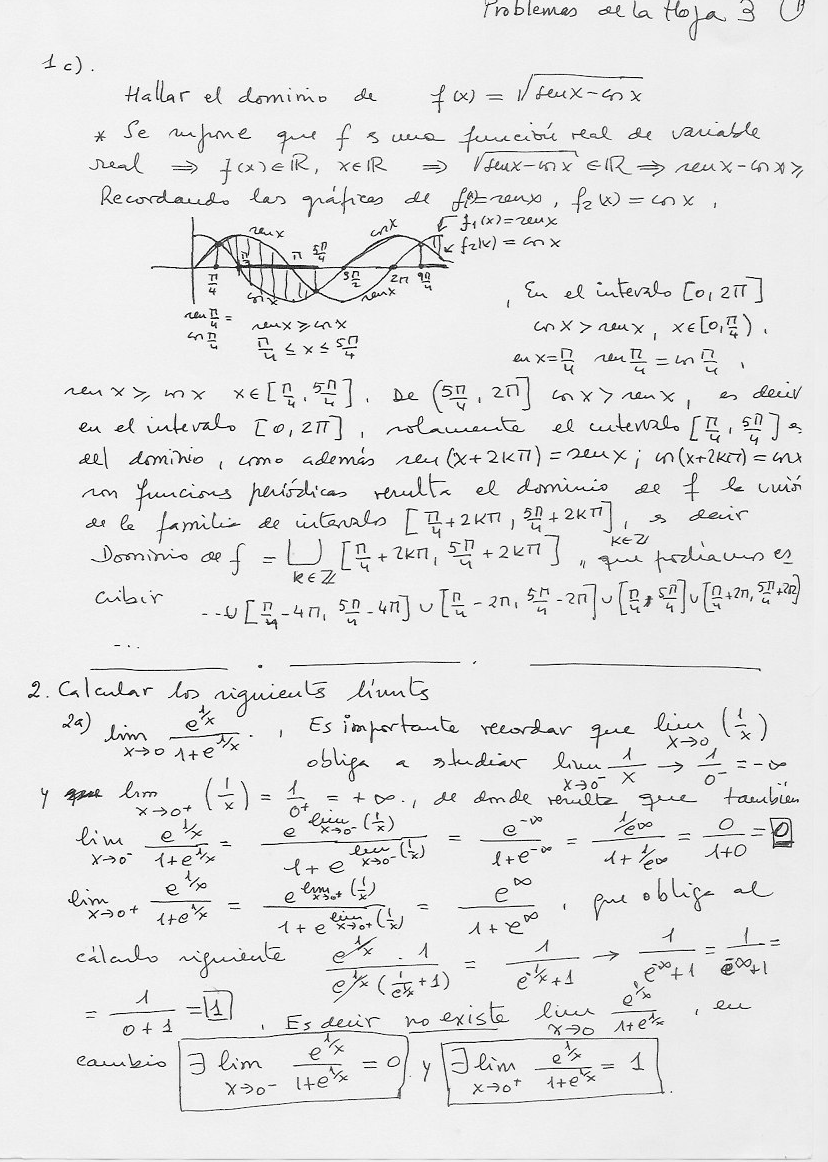 Problemas de la Hoja 3 1
1 c).
Hallar el dominio de f(x) = √(senx - cosx)
* Se supone que f es una función real de variable
real ⇒ f(x) ∈ ℝ, x ∈ ℝ ⇒ √(senx - cosx) ∈ ℝ ⇒ senx - cosx ≥
Recordando las gráficas de f₁(x) = senx, f₂(x) = cosx,
senx cosx f₁(x) = senx
f₂(x) = cosx
π/4 π/2 π 5π/4 3π/2 2π 9π/4
cosx senx
sen π/4 =
cos π/4
senx ≥ cosx
π/4 ≤ x ≤ 5π/4
, En el intervalo [0, 2π]
cosx > senx, x ∈ [0, π/4).
en x = π/4 sen π/4 = cos π/4,
senx ≥ cosx x ∈ [π/4, 5π/4]. De (5π/4, 2π] cosx > senx, es decir
en el intervalo [0, 2π], solamente el intervalo [π/4, 5π/4] es
del dominio, como además sen(x + 2kπ) = senx; cos(x + 2kπ) = cosx
son funcions periódicas resulta el dominio de f la unió
de la familia de intervalos [π/4 + 2kπ, 5π/4 + 2kπ] k∈ℤ, es decir
Dominio de f = ⋃ k∈ℤ [π/4 + 2kπ, 5π/4 + 2kπ], que podíamos es
cribir ...∪ [π/4 - 4π, 5π/4 - 4π] ∪ [π/4 - 2π, 5π/4 - 2π] ∪ [π/4, 5π/4] ∪ [π/4 + 2π, 5π/4 + 2π]
...
2. Calcular los siguients límits
2a) lim x→0 e^(1/x) / (1 + e^(1/x)). , Es importante recordar que lim x→0 (1/x)
obliga a studiar lim x→0⁻ 1/x → 1/0⁻ = -∞
y lim x→0⁺ (1/x) = 1/0⁺ = +∞., de donde resulta que también
lim x→0⁻ e^(1/x) / (1 + e^(1/x)) = e^(lim x→0⁻ (1/x)) / (1 + e^(lim x→0⁻ (1/x))) = e^(-∞) / (1 + e^(-∞)) = (1/e^∞) / (1 + 1/e^∞) = 0 / (1 + 0) = 0
lim x→0⁺ e^(1/x) / (1 + e^(1/x)) = e^(lim x→0⁺ (1/x)) / (1 + e^(lim x→0⁺ (1/x))) = e^∞ / (1 + e^∞), que obliga al
cálculo siguiente e^(1/x) · 1 / (e^(1/x) (1/e^(1/x) + 1)) = 1 / (e^(-1/x) + 1) → 1 / (e^(-∞) + 1) = 1 / (e^(-∞) + 1) =
= 1 / (0 + 1) = 1 . Es decir no existe lim x→0 e^(1/x) / (1 + e^(1/x)), en
cambio ∃ lim x→0⁻ e^(1/x) / (1 + e^(1/x)) = 0 y ∃ lim x→0⁺ e^(1/x) / (1 + e^(1/x)) = 1.